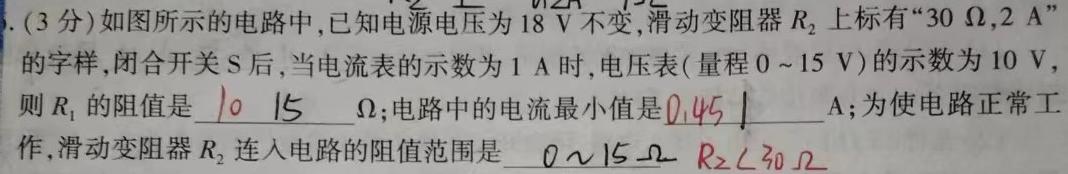 .(3分)如图所示的电路中,已知电源电压为18 V不变,滑动变阻器R₂上标有“30 Ω,2 A”
的字样,闭合开关S后,当电流表的示数为1 A时,电压表(量程0~15 V)的示数为10 V,
则R₁的阻值是 10 15 Ω;电路中的电流最小值是0.45 1 A;为使电路正常工
作,滑动变阻器R₂连入电路的阻值范围是 0~15Ω R₂<30Ω